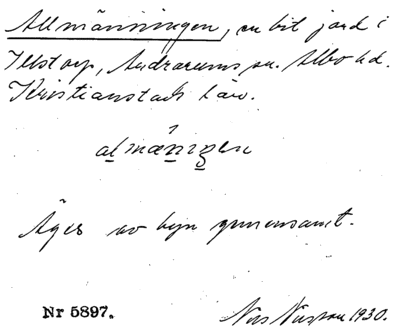 Allmänningen, en bit jord i
Illstorp, Andrarums sn. Albo hd.
Kristianstads län.
almæ̂niŋen
Äges av byn gemensamt.
Nr 5897.
Nils 1930.